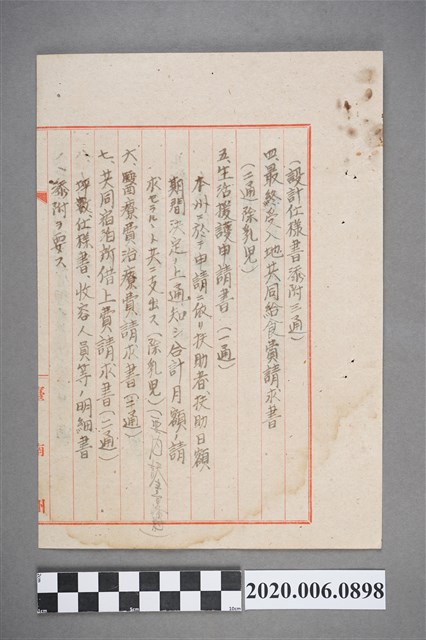 (設計仕様書添附三通)
四、最終受入地共同給食費請求書
(二通)除乳児)
五、生活援護申請書(一通)
本州ニ於テ申請ニ依リ扶助者、扶助日額
期間決定ノ上通知シ合計月額ノ請
求セラルヽト共ニ支出ス(除乳児)
六、醫療費治療費請求書(二通)
七、共同宿泊所借上費請求書(二通)
坪數仕様書、收容人員等ノ明細書
添附ヲ要ス
臺南州
2020.006.0898